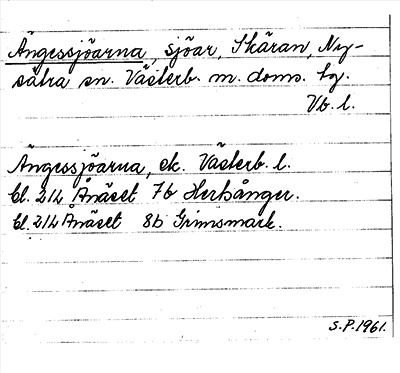 Ängessjöarna, sjöar, Skäran, Ny-
sätra sn. Västerb. m. doms. tg.
Vb. l.
Ängessjöarna, ek. Västerb. l.
bl. 214 Ånäset 7b Herrånger.
bl. 214 Ånäset 8b Grimsmark.
S.P. 1961.